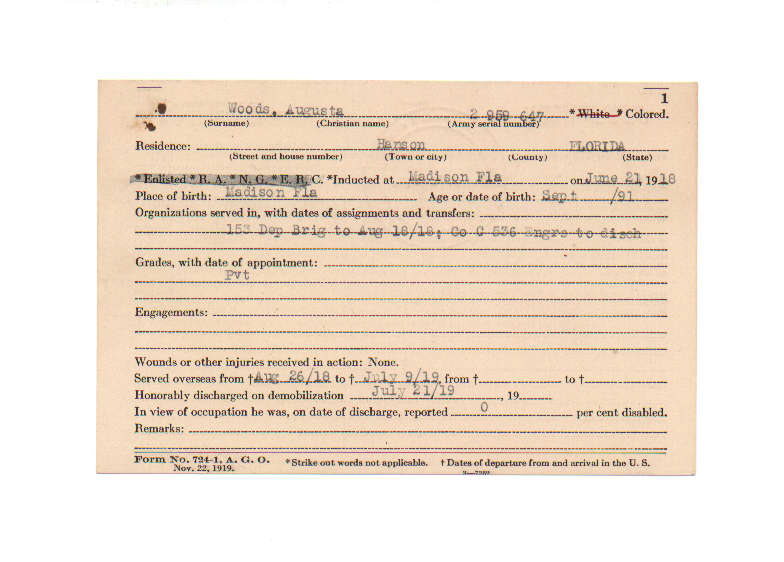 1
Woods, Augusta 2 959 647 * White * Colored.
(Surname) (Christian name) (Army serial number)
Residence: Hanson FLORIDA
(Street and house number) (Town or city) (County) (State)
* Enlisted * R. A. * N. G. * E. R. C. *Inducted at Madison Fla on June 21, 1918
Place of birth: Madison Fla Age or date of birth: Sept /91
Organizations served in, with dates of assignments and transfers:
153 Dep Brig to Aug 18/18; Co C 536 Engrs to disch
Grades, with date of appointment:
Pvt
Engagements:
Wounds or other injuries received in action: None.
Served overseas from † Aug 26/18 to † July 9/19, from † to †
Honorably discharged on demobilization July 21/19, 19
In view of occupation he was, on date of discharge, reported 0 per cent disabled.
Remarks:
Form No. 724-1, A. G. O. *Strike out words not applicable. † Dates of departure from and arrival in the U. S.
Nov. 22, 1919.